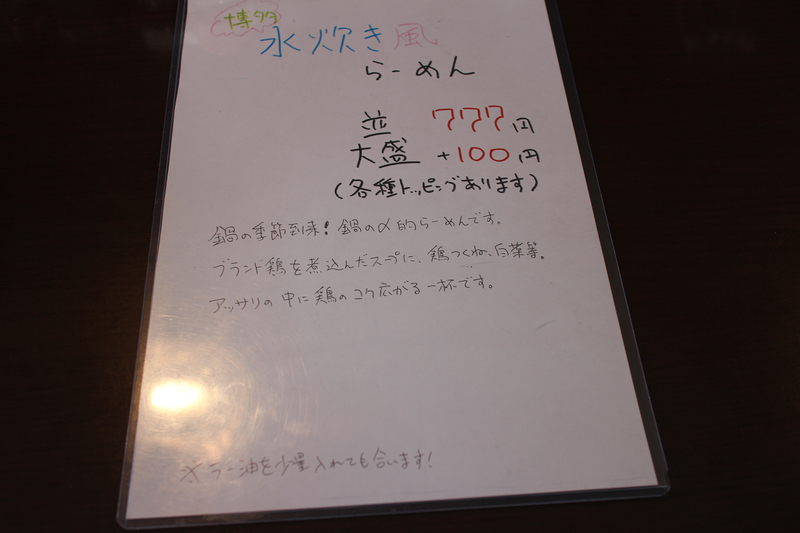 博多
水炊き風
らーめん
並 777円
大盛 +100円
(各種トッピングあります)
鍋の季節到来! 鍋の〆的らーめんです。
ブランド鶏を煮込んだスープに、鶏つくね、白菜等。
アッサリの中に鶏のコク広がる一杯です。
※ラー油を少量入れても合います!